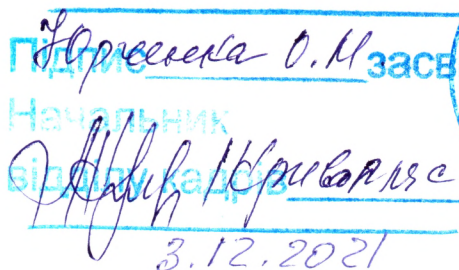 Юрченка О.М
Підпис засв
Начальник
відділу кадрів
3.12.2021